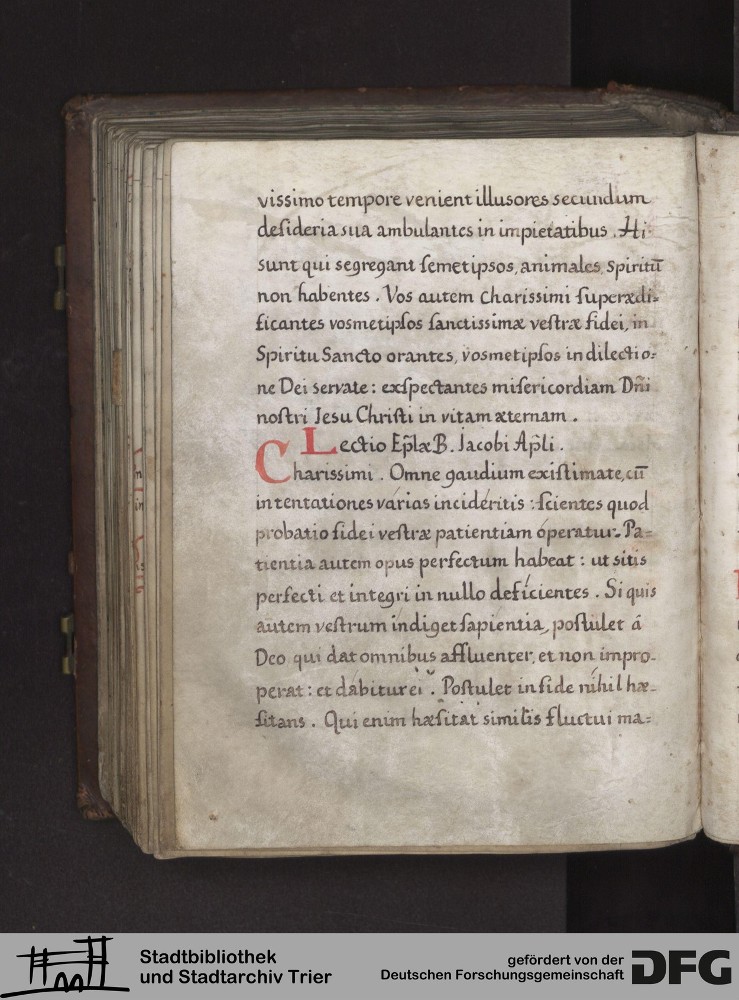 vissimo tempore venient illusores secundum
deſideria sua ambulantes in impietatibus. Hi
sunt qui segregant ſemetipsos, animales, Spiritū
non habentes. Vos autem Charissimi ſuperædi-
ficantes vosmetipſos ſanctissimæ veſtræ fidei, in
Spiritu Sancto orantes, vosmetipſos in dilectio-
ne Dei servate: exſpectantes miſericordiam Dn̄i
noſtri Jesu Chriſti in vitam æternam.
Lectio Ep̄læ B. Jacobi Ap̄li.
Charissimi. Omne gaudium exiſtimate, cū
in tentationes várias incidéritis: ſcientes quod
probatio fidei veſtræ patientiam óperatur. Pa=
tientia autem opus perfectum habeat: ut sitis
perfecti et integri in nullo defícientes. Si quis
autem veſtrum indiget ſapientia, poſtulet á
Deo qui dat omnibus affluenter, et non impro-
perat: et dabitur ei. Poſtulet in fide nihil hæ-
ſitans. Qui enim hæſitat similis fluctui ma=
Stadtbibliothek
und Stadtarchiv Trier
gefördert von der
Deutschen Forschungsgemeinschaft
DFG